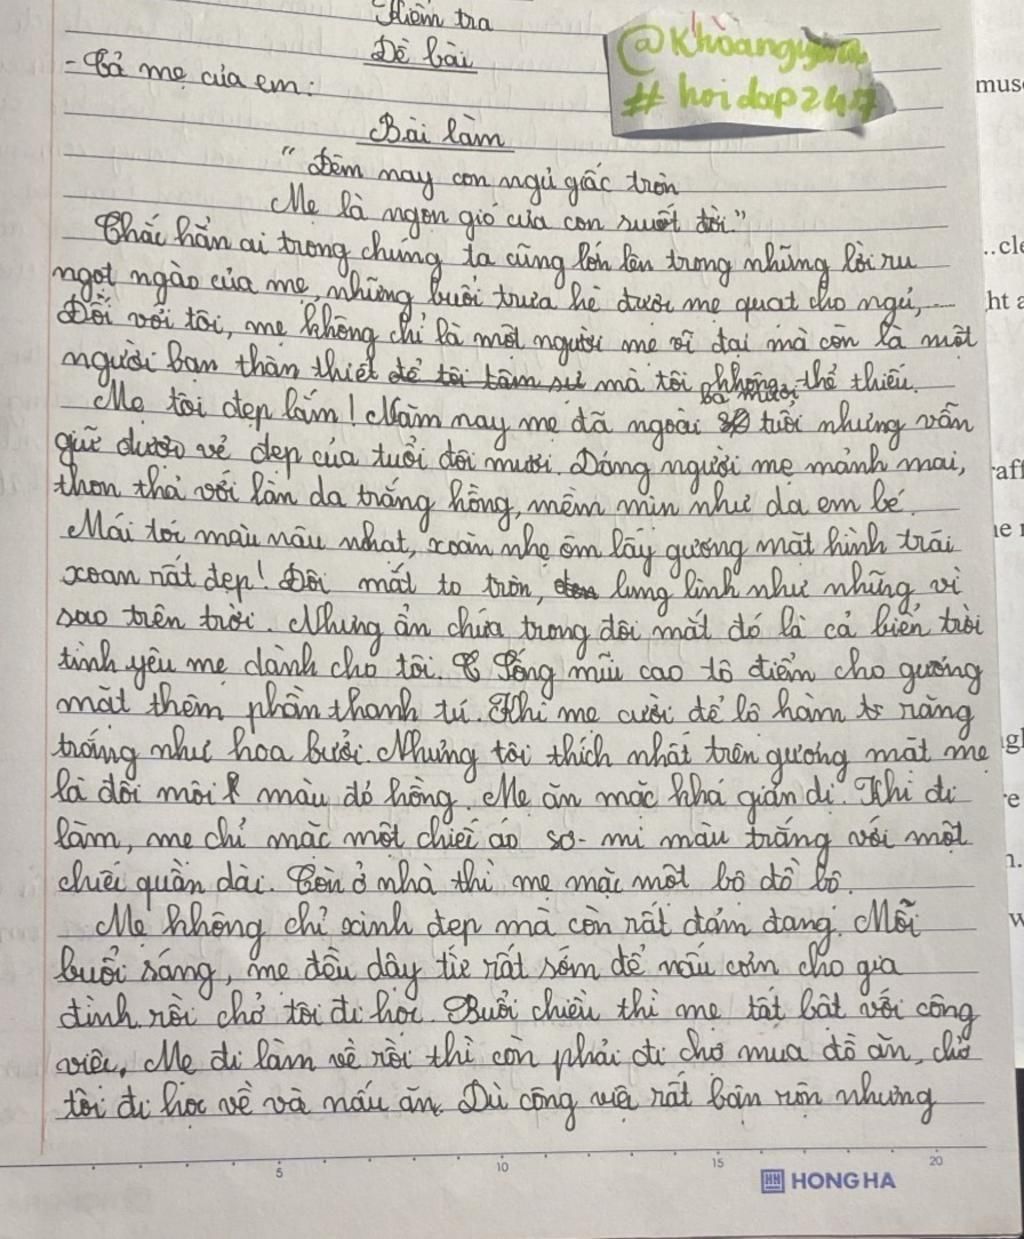 Kiểm tra
Đề bài
@Khoanguyena
#hoidap247
- Tả mẹ của em:
Bài làm
"Đêm nay con ngủ giấc tròn
Mẹ là ngọn gió của con suốt đời."
Chắc hẳn ai trong chúng ta cũng lớn lên trong những lời ru
ngọt ngào của mẹ, những buổi trưa hè được mẹ quạt cho ngủ,...
Đối với tôi, mẹ không chỉ là một người mẹ vĩ đại mà còn là một
người bạn thân thiết để tôi tâm sự mà tôi không thể thiếu.
Mẹ tôi đẹp lắm! Năm nay mẹ đã ngoài ba mươi tuổi nhưng vẫn
giữ được vẻ đẹp của tuổi đôi mươi. Dáng người mẹ mảnh mai,
thon thả với làn da trắng hồng, mềm mịn như da em bé.
Mái tóc màu nâu nhạt, xoăn nhẹ ôm lấy gương mặt hình trái
xoan rất đẹp! Đôi mắt to tròn, lung linh như những vì
sao trên trời. Nhưng ẩn chứa trong đôi mắt đó là cả biển trời
tình yêu mẹ dành cho tôi. Sống mũi cao tô điểm cho gương
mặt thêm phần thanh tú. Khi mẹ cười để lộ hàm răng
trắng như hoa bưởi. Nhưng tôi thích nhất trên gương mặt mẹ
là đôi môi màu đỏ hồng. Mẹ ăn mặc khá giản dị. Khi đi
làm, mẹ chỉ mặc một chiếc áo sơ-mi màu trắng với một
chiếc quần dài. Còn ở nhà thì mẹ mặc một bộ đồ bộ.
Mẹ không chỉ xinh đẹp mà còn rất đảm đang. Mỗi
buổi sáng, mẹ đều dậy từ rất sớm để nấu cơm cho gia
đình rồi chở tôi đi học. Buổi chiều thì mẹ tất bật với công
việc, Mẹ đi làm về rồi thì còn phải đi chợ mua đồ ăn, chở
tôi đi học về và nấu ăn. Dù công việc rất bận rộn nhưng
5 10 15 20
HH HONG HA